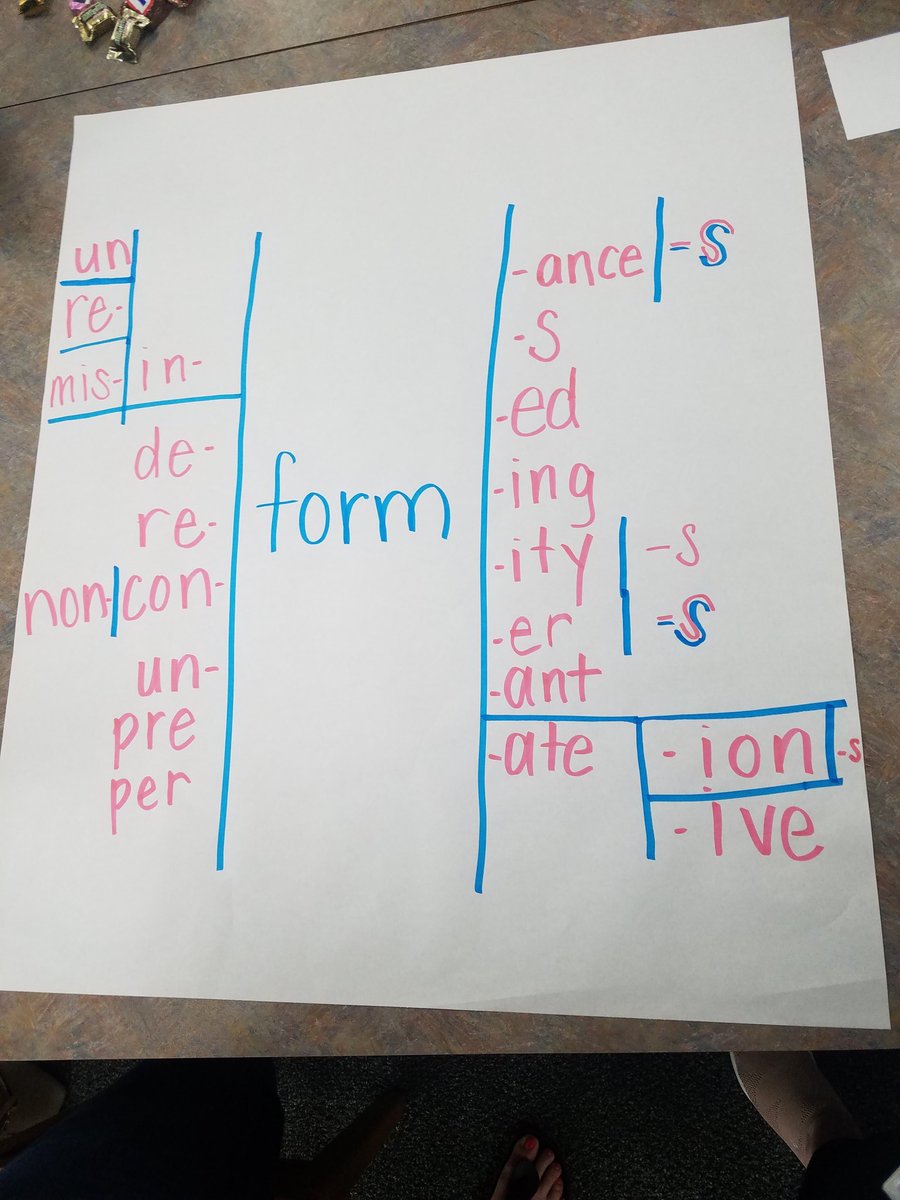 un
re-
mis- in-
de-
re-
non- con-
un-
pre
per
form
-ance =s
-s
-ed
-ing
-ity -s
-er =s
-ant
-ate -ion -s
-ive